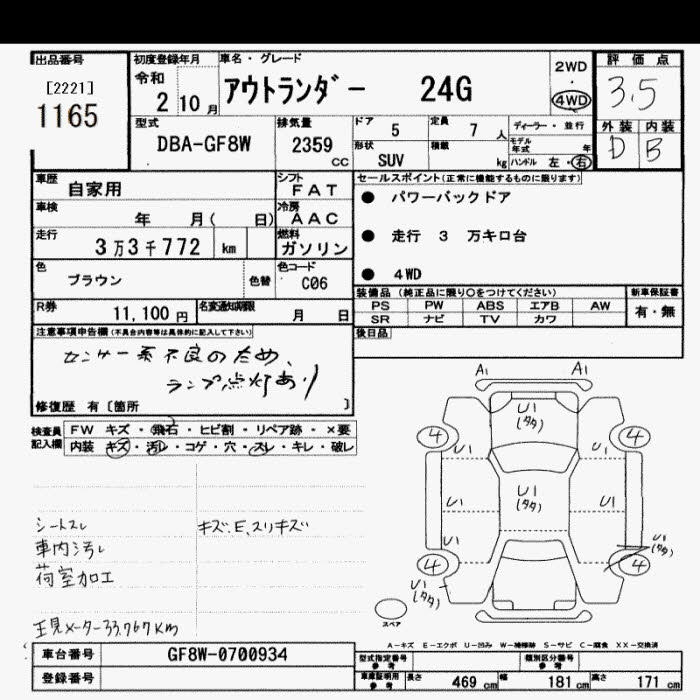 出品番号
[2221]
1165
初度登録年月
令和
2 10 月
車名・グレード
アウトランダー 24G
2WD
・
4WD
評価点
3.5
外装 内装
D B
型式
DBA-GF8W
排気量
2359
cc
ドア
5
定員
7 人
形状
SUV
積載
kg
ディーラー・並行
モデル年式 年
ハンドル 左・右
車歴
自家用
シフト
FAT
車検
年 月( 日)
冷房
AAC
走行
3万3千772 km
燃料
ガソリン
色
ブラウン
色替
色コード
C06
R券
11,100 円
名変通知期限
月 日
セールスポイント(正常に機能するものに限ります)
● パワーバックドア
● 走行 3 万キロ台
● 4WD
装備品(純正品に限り○をつけてください)
PS PW ABS エアB AW
SR ナビ TV カワ
新車保証書
有・無
後日品
注意事項申告欄(不具合内容等は具体的に記入して下さい)
センサー系不良のため、
ランプ点灯あり
修復歴 有〔箇所 〕
検査員
記入欄
FW キズ・飛石・ヒビ割・リペア跡・×要
内装 キズ・汚レ・コゲ・穴・スレ・キレ・破レ
シートスレ
車内汚レ
荷室加工
キズ、E、スリキズ
現メーター33,767Km
A1 A1
U1
(タタ)
4 4
U1 U1
U1
(タタ)
U1 U1
U1
U1
(タタ)
4 4
U1
(タタ)
スペア
A－キズ E－エクボ U－凹み W－補修跡 S－サビ C－腐食 XX－交換済
車台番号
GF8W-0700934
登録番号
型式指定番号
参考
類別区分番号
参考
車庫証明用
参考
長さ 469 cm
幅 181 cm
高さ 171 cm